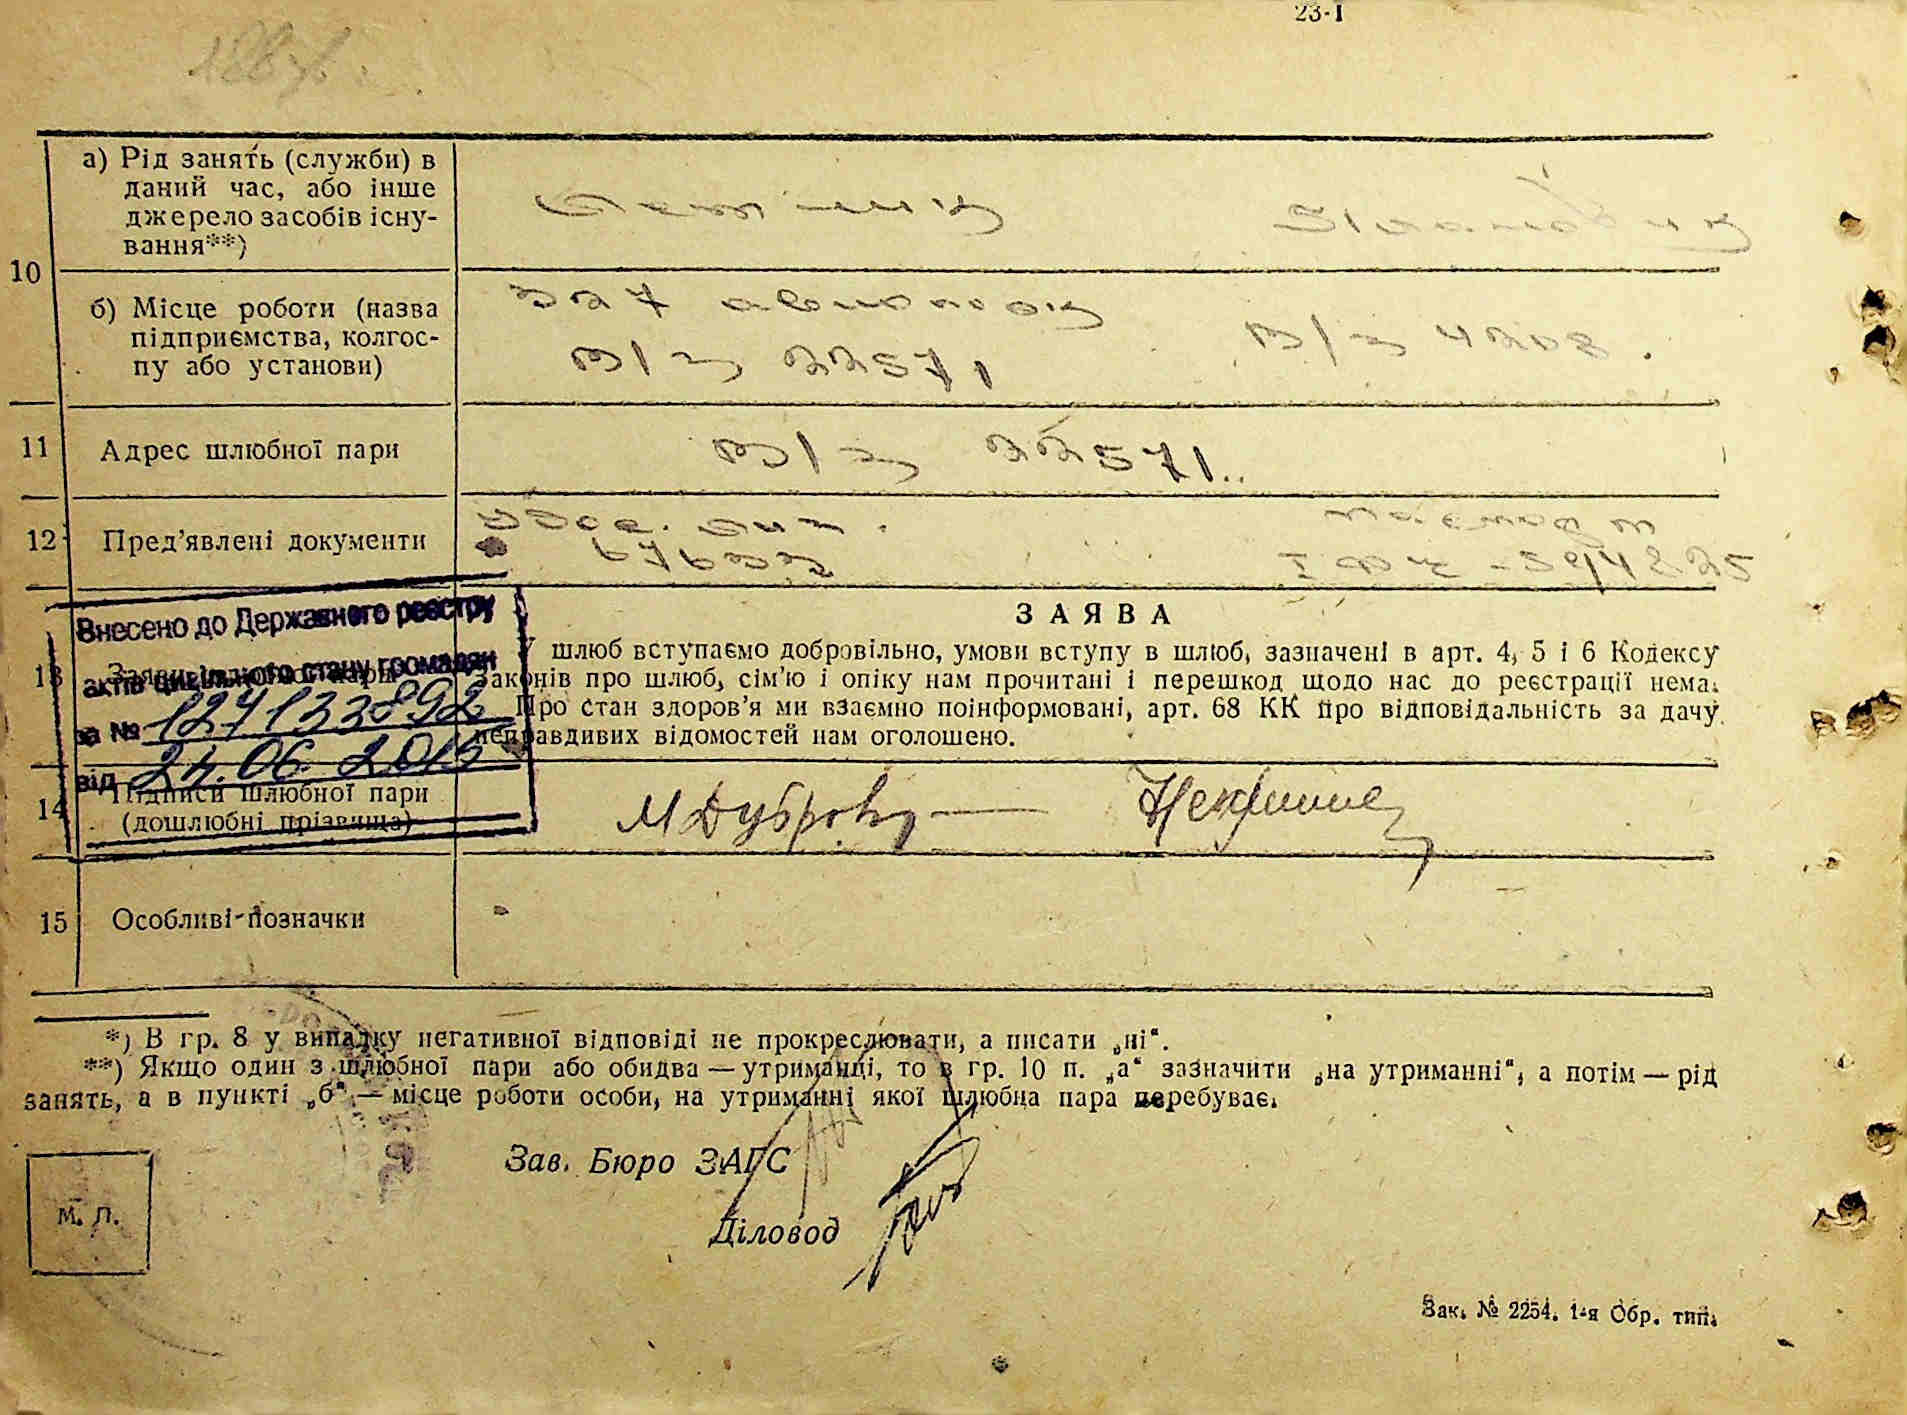 23-I
10
а) Рід занять (служби) в
даний час, або інше
джерело засобів існу-
вання**)
б) Місце роботи (назва
підприємства, колгос-
пу або установи)
327 авиаполк
В/ч 22571
В/ч 4208.
11
Адрес шлюбної пари
В/ч 22571.
12
Пред’явлені документи
паспорт
Внесено до Державного реєстру
актів цивільного стану громадян
за № 124133892
від 24.06.2015
13
ЗАЯВА
У шлюб вступаємо добровільно, умови вступу в шлюб, зазначені в арт. 4, 5 і 6 Кодексу
законів про шлюб, сім’ю і опіку нам прочитані і перешкод щодо нас до реєстрації нема.
Про стан здоров’я ми взаємно поінформовані, арт. 68 КК про відповідальність за дачу
неправдивих відомостей нам оголошено.
14
Підписи шлюбної пари
(дошлюбні прізвища)
15
Особливі позначки
*) В гр. 8 у випадку негативної відповіді не прокреслювати, а писати „ні“.
**) Якщо один з шлюбної пари або обидва — утриманці, то в гр. 10 п. „а“ зазначити „на утриманні“, а потім — рід
занять, а в пункті „б“ — місце роботи особи, на утриманні якої шлюбна пара перебуває.
Зав. Бюро ЗАГС
Діловод
М. П.
Зак. № 2254. 1-я Обр. тип.